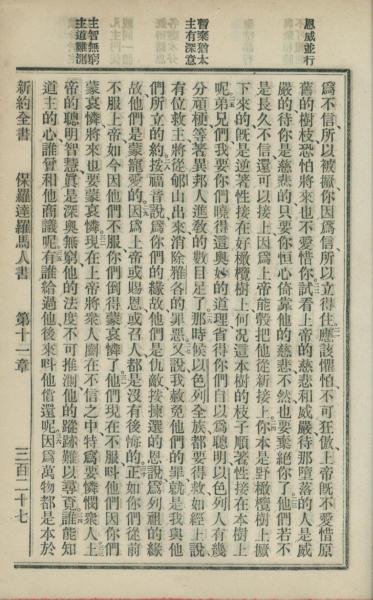 恩威並行
暫棄猶太
主有深意
主智無窮
主道難測
爲不信所以被撅你因爲信所以立得住應該懼怕不可狂傲上帝旣不愛惜原
舊的樹枝恐怕將來也不愛惜你試看上帝的慈悲和威嚴待那墮落的人是威
嚴的待你是慈悲的只要你恒心倚靠他的慈悲不然也要棄絕你了他們若不
是長久不信還可以接上因爲上帝能彀把他從新接上你本是野橄欖樹上撅
下來的旣是逆著性接在好橄欖樹上何况這本樹的枝子順著性接在本樹上
呢弟兄們我要你們曉得這奧妙的道理省得你們自以爲聰明以色列人有幾
分頑梗等著異邦人進敎的數目足了那時候以色列全族都要得救如經上說
有位救主將從郇山出來消除雅各的罪惡又說我赦免他們的罪就是我與他
們所立的約按福音說爲你們的緣故他們是仇敵按揀選的恩說爲列祖的緣
故他們是蒙寵愛的因爲上帝或賜恩或召人都是沒有後悔的正如你們從前
不服上帝如今因他們不服你們倒得蒙哀憐了他們現在不服呌他們因你們
蒙哀憐將來也要蒙哀憐現在上帝將衆人圈在不信之中特爲要憐憫衆人上
帝的聰明智慧眞是深奧無窮他的法度不可推測他的蹤跡難以尋覓誰能知
道主的心誰曾和他商議呢有誰給過他後來呌他償還呢因爲萬物都是本於
新約全書 保羅達羅馬人書 第十一章 三百二十七